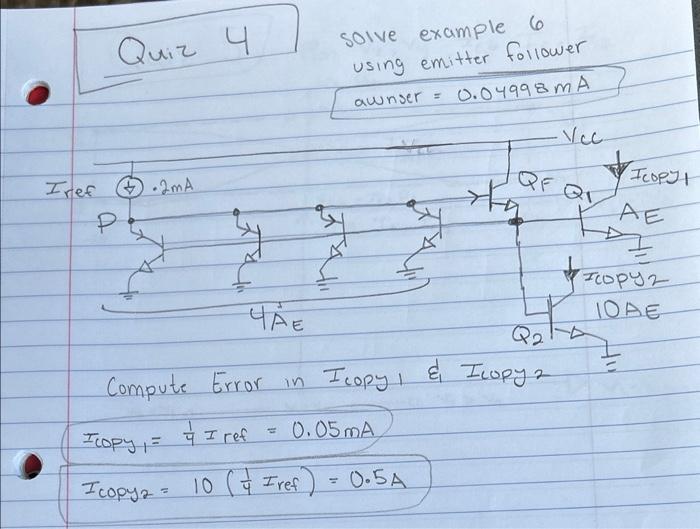 Quiz 4
solve example 6
using emitter follower
awnser = 0.04998mA
Vcc
Vcc
Iref
.2mA
P
QF
Q1
Icopy1
AE
Icopy2
10AE
Q2
4AE
Compute Error in Icopy1 & Icopy2
Icopy1 = 1/4 Iref = 0.05mA
Icopy2 = 10 (1/4 Iref) = 0.5A